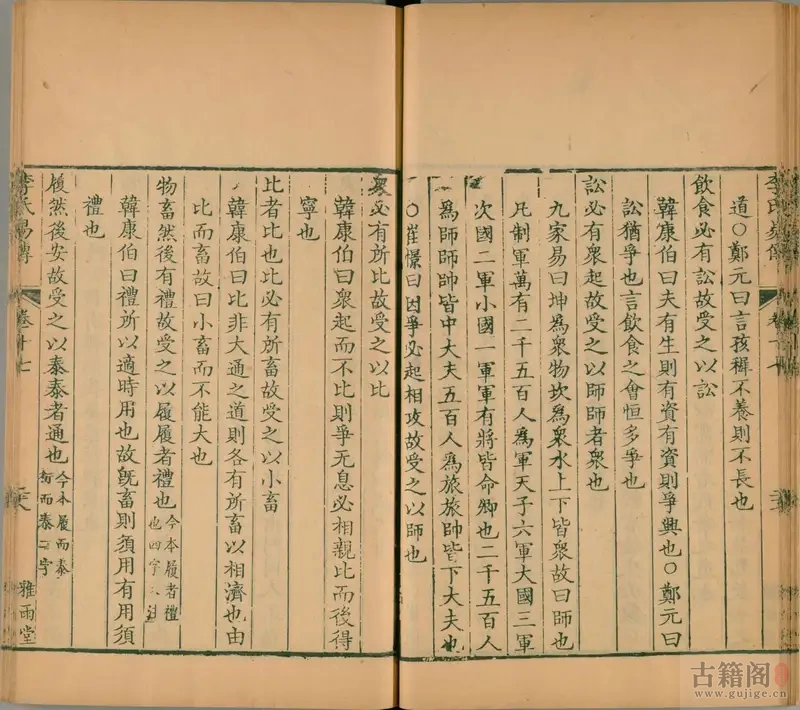 道○鄭元曰言孩穉不養則不長也
飲食必有訟故受之以訟
韓康伯曰夫有生則有資有資則爭興也○鄭元曰
訟猶爭也言飲食之會恒多爭也
訟必有衆起故受之以師師者衆也
九家易曰坤爲衆物坎爲衆水上下皆衆故曰師也
凡制軍萬有二千五百人爲軍天子六軍大國三軍
次國二軍小國一軍軍有將皆命卿也二千五百人
爲師師帥皆中大夫五百人爲旅旅帥皆下大夫也
○崔憬曰因爭必起相攻故受之以師也
衆必有所比故受之以比
韓康伯曰衆起而不比則爭无息必相親比而後得
寧也
比者比也比必有所畜故受之以小畜
韓康伯曰比非大通之道則各有所畜以相濟也由
比而畜故曰小畜而不能大也
物畜然後有禮故受之以履履者禮也今本履者禮
也四字
韓康伯曰禮所以適時用也故旣畜則須用有用須
禮也
履然後安故受之以泰泰者通也今本履而泰
李氏易傳
卷十七
雅雨堂
古籍阁
www.gujige.cn